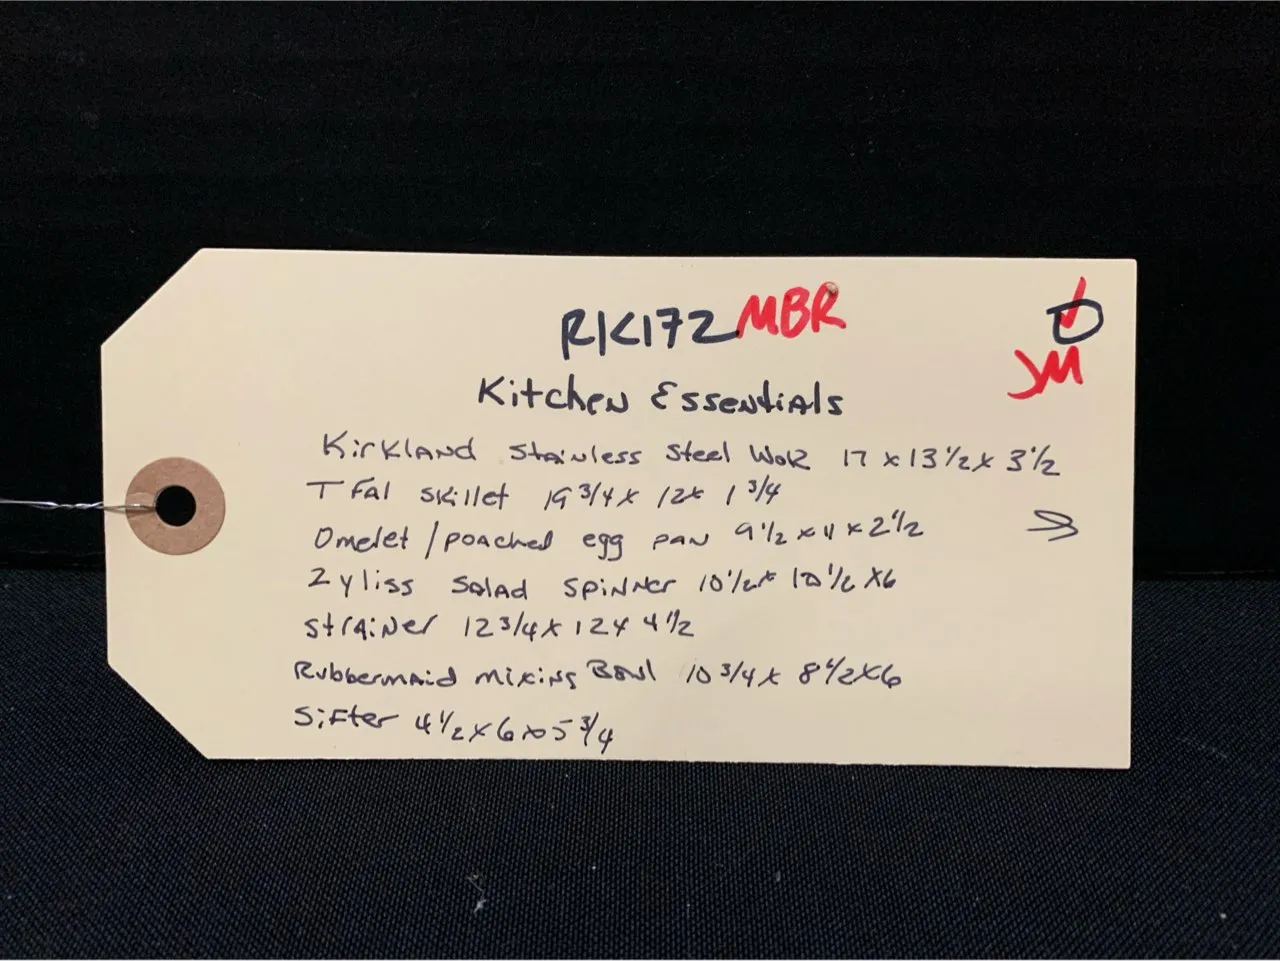 RK172 MBR
Kitchen Essentials
JM
Kirkland Stainless Steel Wok 17 x 13 1/2 x 3 1/2
T Fal Skillet 19 3/4 x 12 x 1 3/4
Omelet / poached egg pan 9 1/2 x 11 x 2 1/2
Zyliss Salad Spinner 10 1/2 x 10 1/2 x 6
Strainer 12 3/4 x 12 x 4 1/2
Rubbermaid Mixing Bowl 10 3/4 x 8 1/2 x 6
Sifter 4 1/2 x 6 x 5 3/4